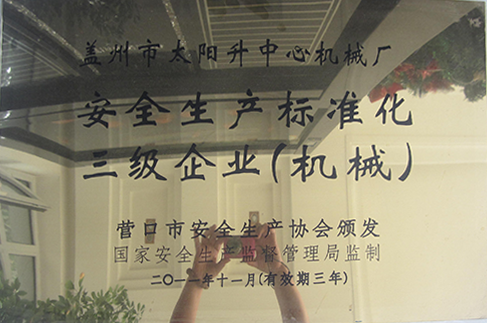 盖州市太阳升中心机械厂
安全生产标准化
三级企业(机械)
营口市安全生产协会颁发
国家安全生产监督管理局监制
二〇一一年十一月(有效期三年)